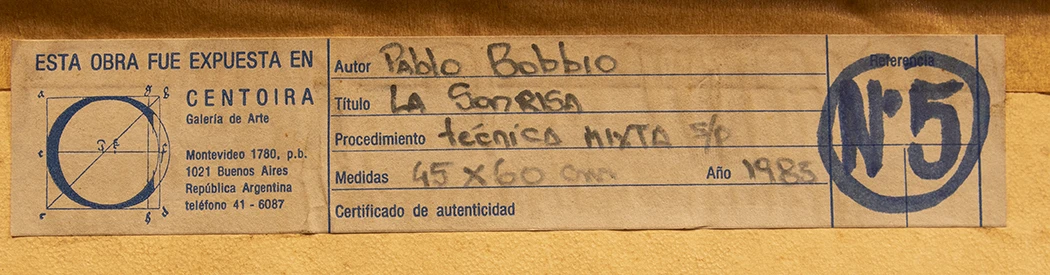 ESTA OBRA FUE EXPUESTA EN
CENTOIRA
Galería de Arte
Montevideo 1780, p.b.
1021 Buenos Aires
República Argentina
teléfono 41 - 6087
Autor Pablo Bobbio
Título LA SONRISA
Procedimiento técnica MIXTA s/p
Medidas 45 x 60 cm Año 1985
Certificado de autenticidad
Referencia
Nº 5